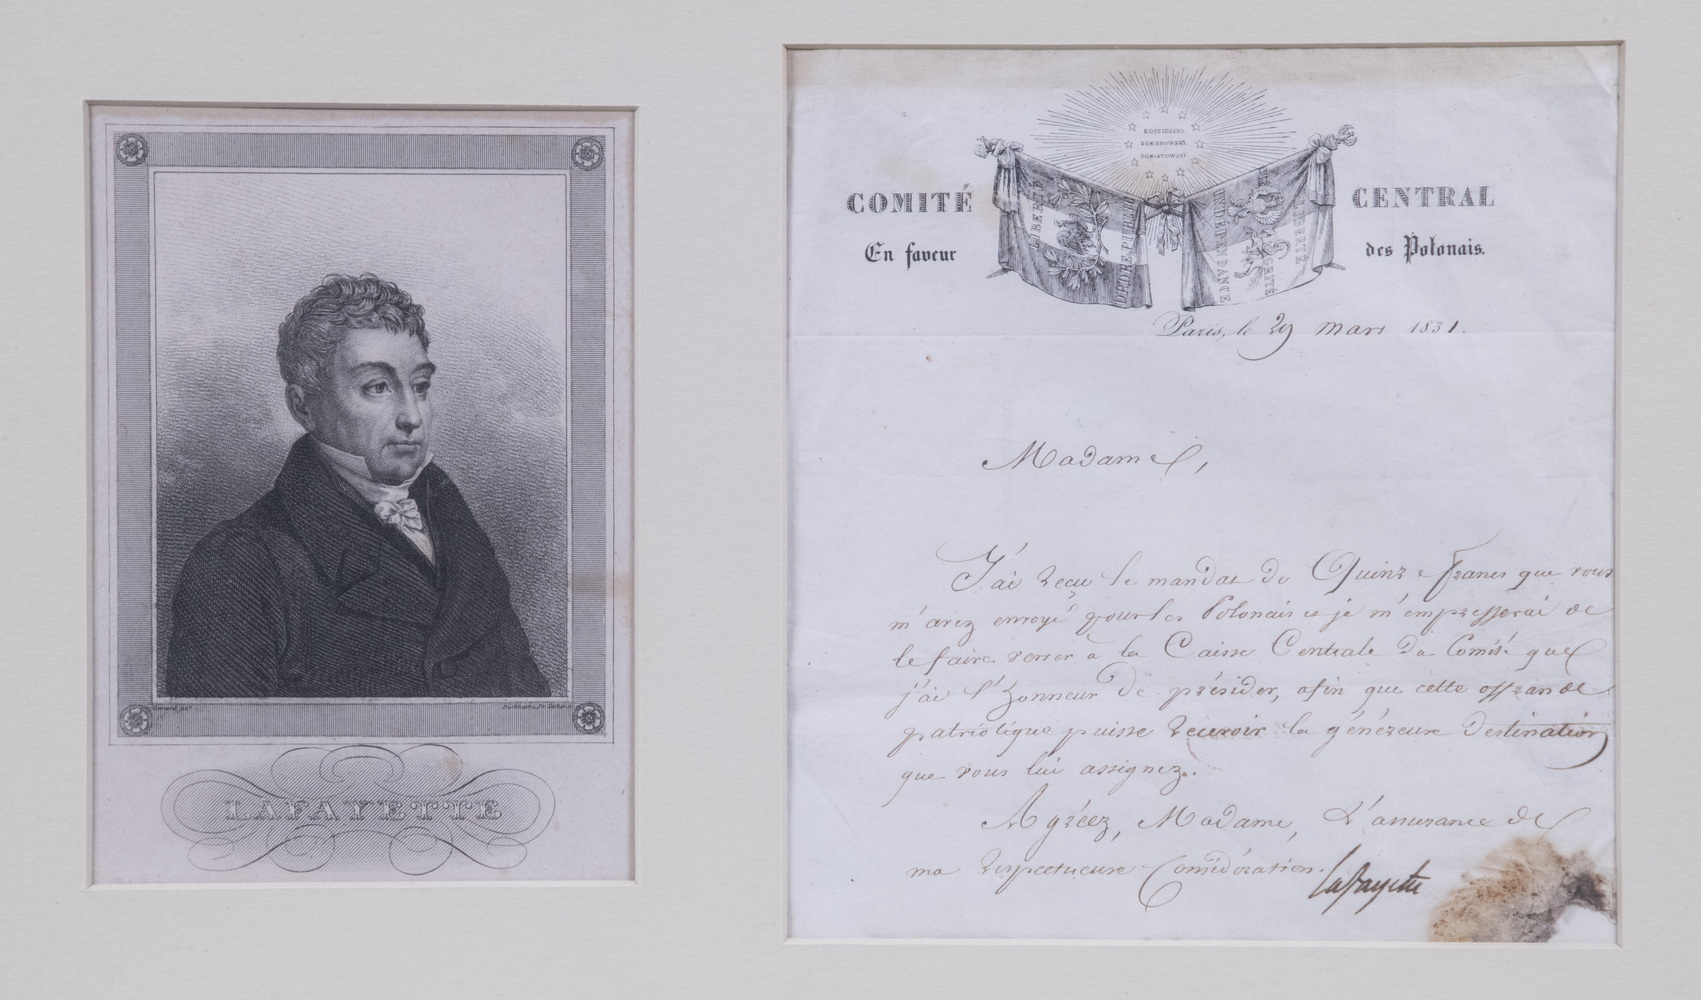 LAFAYETTE
COMITÉ CENTRAL
En faveur des Polonais.
KOSCIUSZKO.
DOMBROWSKI.
PONIATOWSKI
LIBERTÉ
ORDRE PUBLIC
INDÉPENDANCE
LIBERTÉ
Paris, le 29 mars 1831.
Madame,
J'ai reçu le mandat de Quinze francs que vous
m'avez envoyé pour les Polonais et je m'empresserai de
le faire verser à la Caisse Centrale du Comité que
j'ai l'honneur de présider, afin que cette offrande
patriotique puisse recevoir la généreuse destination
que vous lui assignez.
Agréez, Madame, L'assurance de
ma respectueuse Considération.
Lafayette